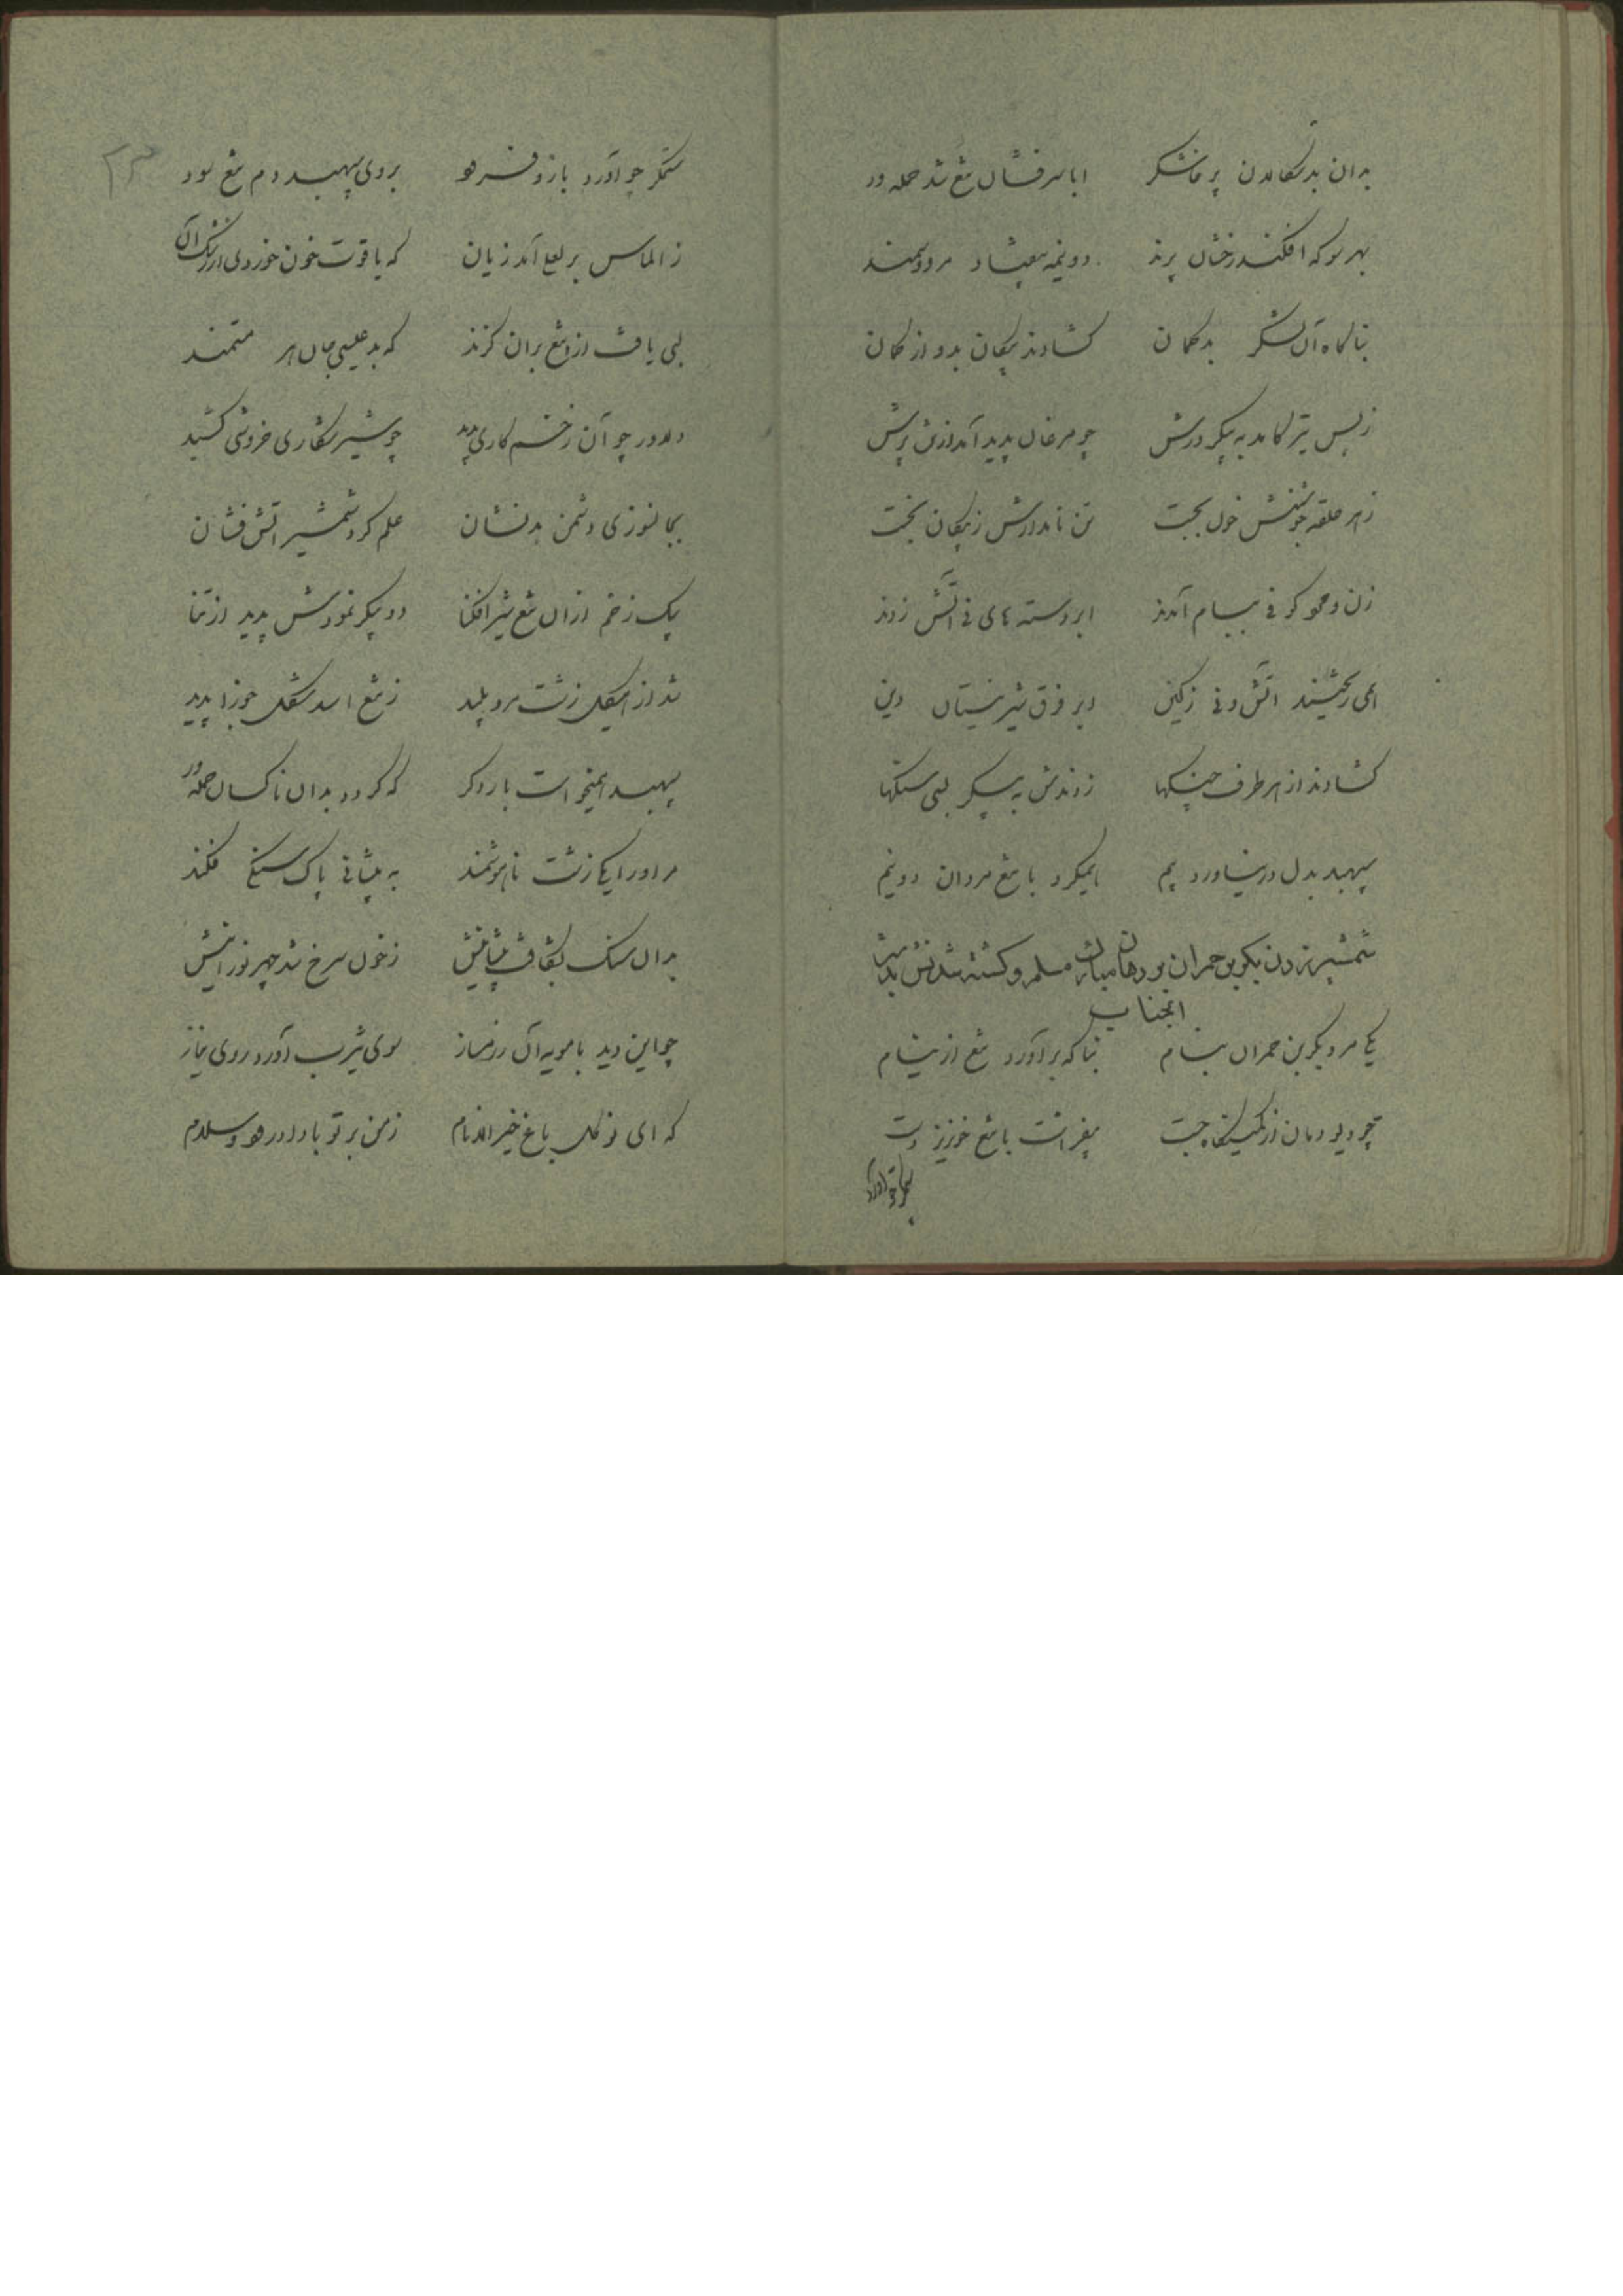 بدان بد سکالان پرخاشگر ابا سرفشان تیغ شد حمله ور
بهر سو که افکند رخشان پرند دو نیمه بیفتاد مرد و سمند
بناگاه آن لشکر بدگمان گشادند پیکان بدو از کمان
ز بس تیر کامد به پیکر درش چو مرغان پدید آمد از تن پرش
ز هر حلقه جوشنش خون بجست تن نامدارش ز پیکان بخست
زن و مرد کوفی ببام آمدند ابر دسته های نی آتش زدند
همی ریختند آتش و نی ز کین بر فرق شیر نیستان دین
گشادند از هر طرف چنگها زدندش به پیکر بسی سنگها
سپهبد بدل در نیاورد بیم همیکرد با تیغ مردان دو نیم
شمشیر زدن بکر بن حمران بر دهان مبارک مسلم و کشته شدنش بدست
انجناب
یکی مرد بکر بن حمران بنام بناگه برآورد تیغ از نیام
چو دیو دمان از کمینگاه جست بیفراشت با تیغ خونریز دست
ستمگر چو آورد بازو فرود بروی سپهبد دم تیغ سود
ز الماس بر لعل آمد زیان که یاقوت خون خوردی از رنگ آن
لبی یافت از تیغ بران گزند که بد عیسی جان هر مستمند
دلاور چو آن زخم کاری بدید چو شیر شکاری خروشی کشید
بجانسوزی دشمن بدنشان علم کرد شمشیر آتش فشان
بیک زخم از آن تیغ شیر افکنا دو پیکر نمودش پدید از تنا
شد از هیکل زشت مرد پلید ز تیغ اسد شکل جوزا پدید
سپهبد همیخواست بار دگر که گردد بدان ناکسان حمله ور
مر او را یکی زشت ناهوشمند به پیشانی پاک سنگی فکند
بدان سنگ بشکافت پیشانیش ز خون سرخ شد چهر نورانیش
چو این دید با مویه آن رزمساز سوی یثرب آورد روی نیاز
که ای نو گل باغ خیر الانام ز من بر تو بادا درود و سلام